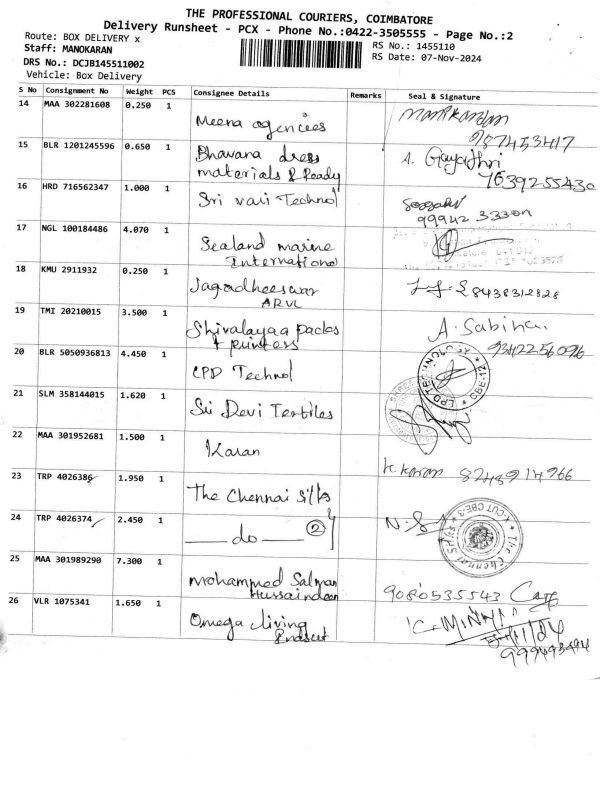 THE PROFESSIONAL COURIERS, COIMBATORE
Delivery Runsheet - PCX - Phone No.:0422-3505555 - Page No.:2
Route: BOX DELIVERY x
RS No.: 1455110
Staff: MANOKARAN
RS Date: 07-Nov-2024
DRS No.: DCJB145511002
Vehicle: Box Delivery
S No Consignment No Weight PCS Consignee Details Remarks Seal & Signature
14 MAA 302281608 0.250 1 Meena agencies Manikandan
987453417
15 BLR 1201245596 0.650 1 Bhavana dress A. Gayathri
materials & Ready 7639255430
16 HRD 716562347 1.000 1 Sri vari Technol
99942 33301
17 NGL 100184486 4.070 1 Sealand marine
International
18 KMU 2911932 0.250 1 Jagadheeswar 8438312828
ARVL
19 TMI 20210015 3.500 1 Shivalayaa packs A. Sabina
& printers 9342256096
20 BLR 5050936813 4.450 1 LPD Technol LPD TECHNOLOGY CBE-12
21 SLM 358144015 1.620 1 Sri Devi Textiles
22 MAA 301952681 1.500 1 Karan
K. Karan 8248914966
23 TRP 4026386 1.950 1 The Chennai silks
24 TRP 4026374 2.450 1 do 2 N. The Chennai Silks X CUT CBE-3
25 MAA 301989290 7.300 1 Mohammed Salman
Hussaindeen 9080535543
26 VLR 1075341 1.650 1 Omega living